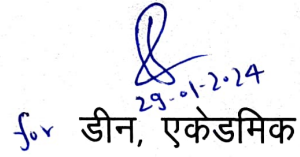 29-01-2024
for डीन, एकेडमिक